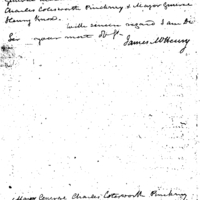 Charles Cotesworth Pinckney & Major General
Henry Knox.
With sincere regard I am Dr
Sir your most Ob St
James McHenry
Major General Charles Cotesworth Pinckney